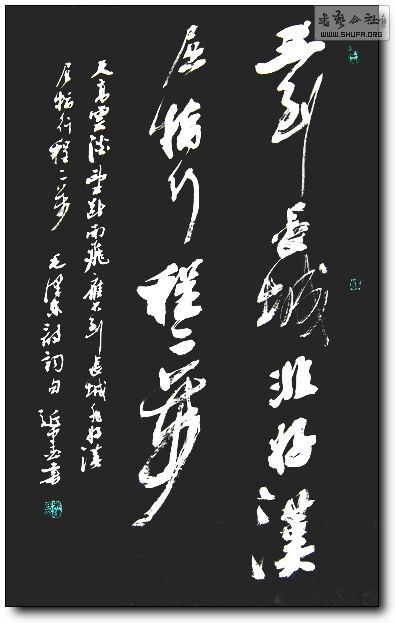 書藝公社
WWW.SHUFA.ORG
不到長城非好漢
屈指行程二萬
天高雲淡望斷南飛雁不到長城非好漢
屈指行程二萬 毛澤東詩詞句 書